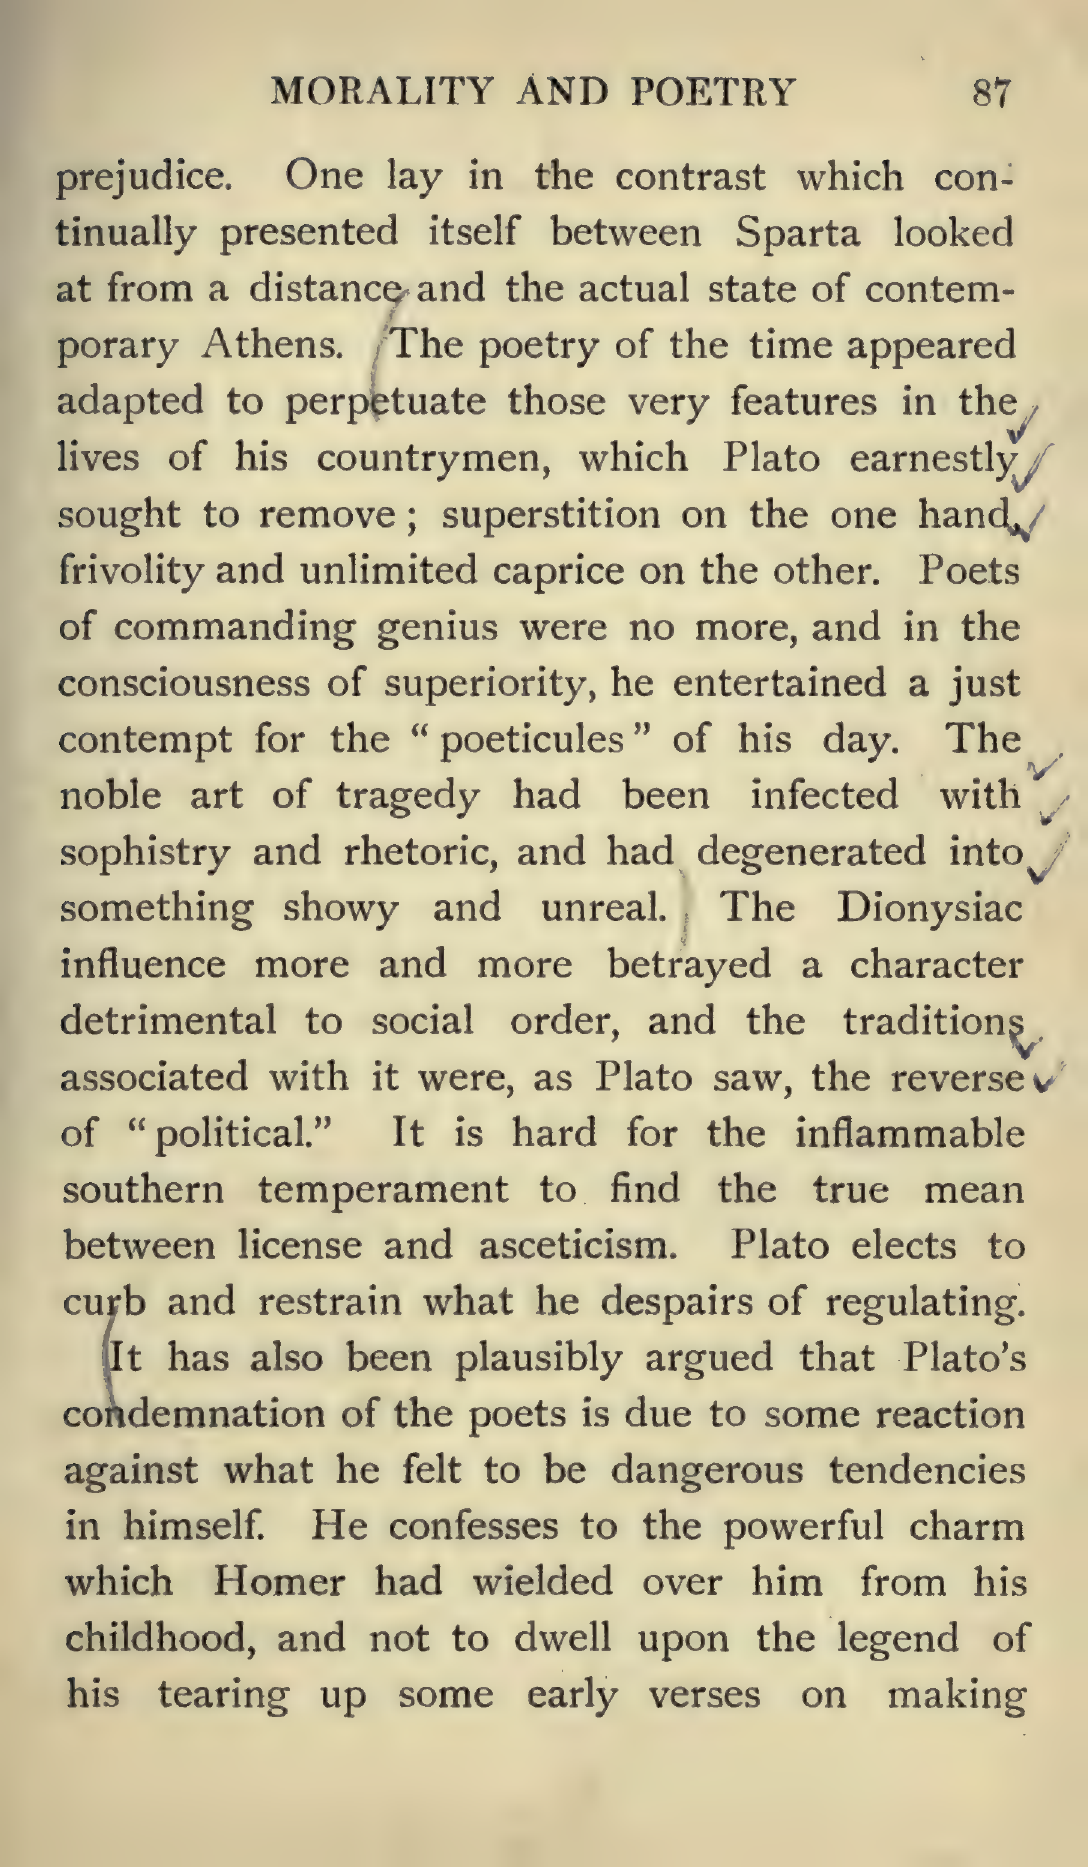 MORALITY AND POETRY 87
prejudice. One lay in the contrast which con-
tinually presented itself between Sparta looked
at from a distance and the actual state of contem-
porary Athens. The poetry of the time appeared
adapted to perpetuate those very features in the
lives of his countrymen, which Plato earnestly
sought to remove ; superstition on the one hand,
frivolity and unlimited caprice on the other. Poets
of commanding genius were no more, and in the
consciousness of superiority, he entertained a just
contempt for the “ poeticules ” of his day. The
noble art of tragedy had been infected with
sophistry and rhetoric, and had degenerated into
something showy and unreal. The Dionysiac
influence more and more betrayed a character
detrimental to social order, and the traditions
associated with it were, as Plato saw, the reverse
of “ political.” It is hard for the inflammable
southern temperament to find the true mean
between license and asceticism. Plato elects to
curb and restrain what he despairs of regulating.
It has also been plausibly argued that Plato’s
condemnation of the poets is due to some reaction
against what he felt to be dangerous tendencies
in himself. He confesses to the powerful charm
which Homer had wielded over him from his
childhood, and not to dwell upon the legend of
his tearing up some early verses on making